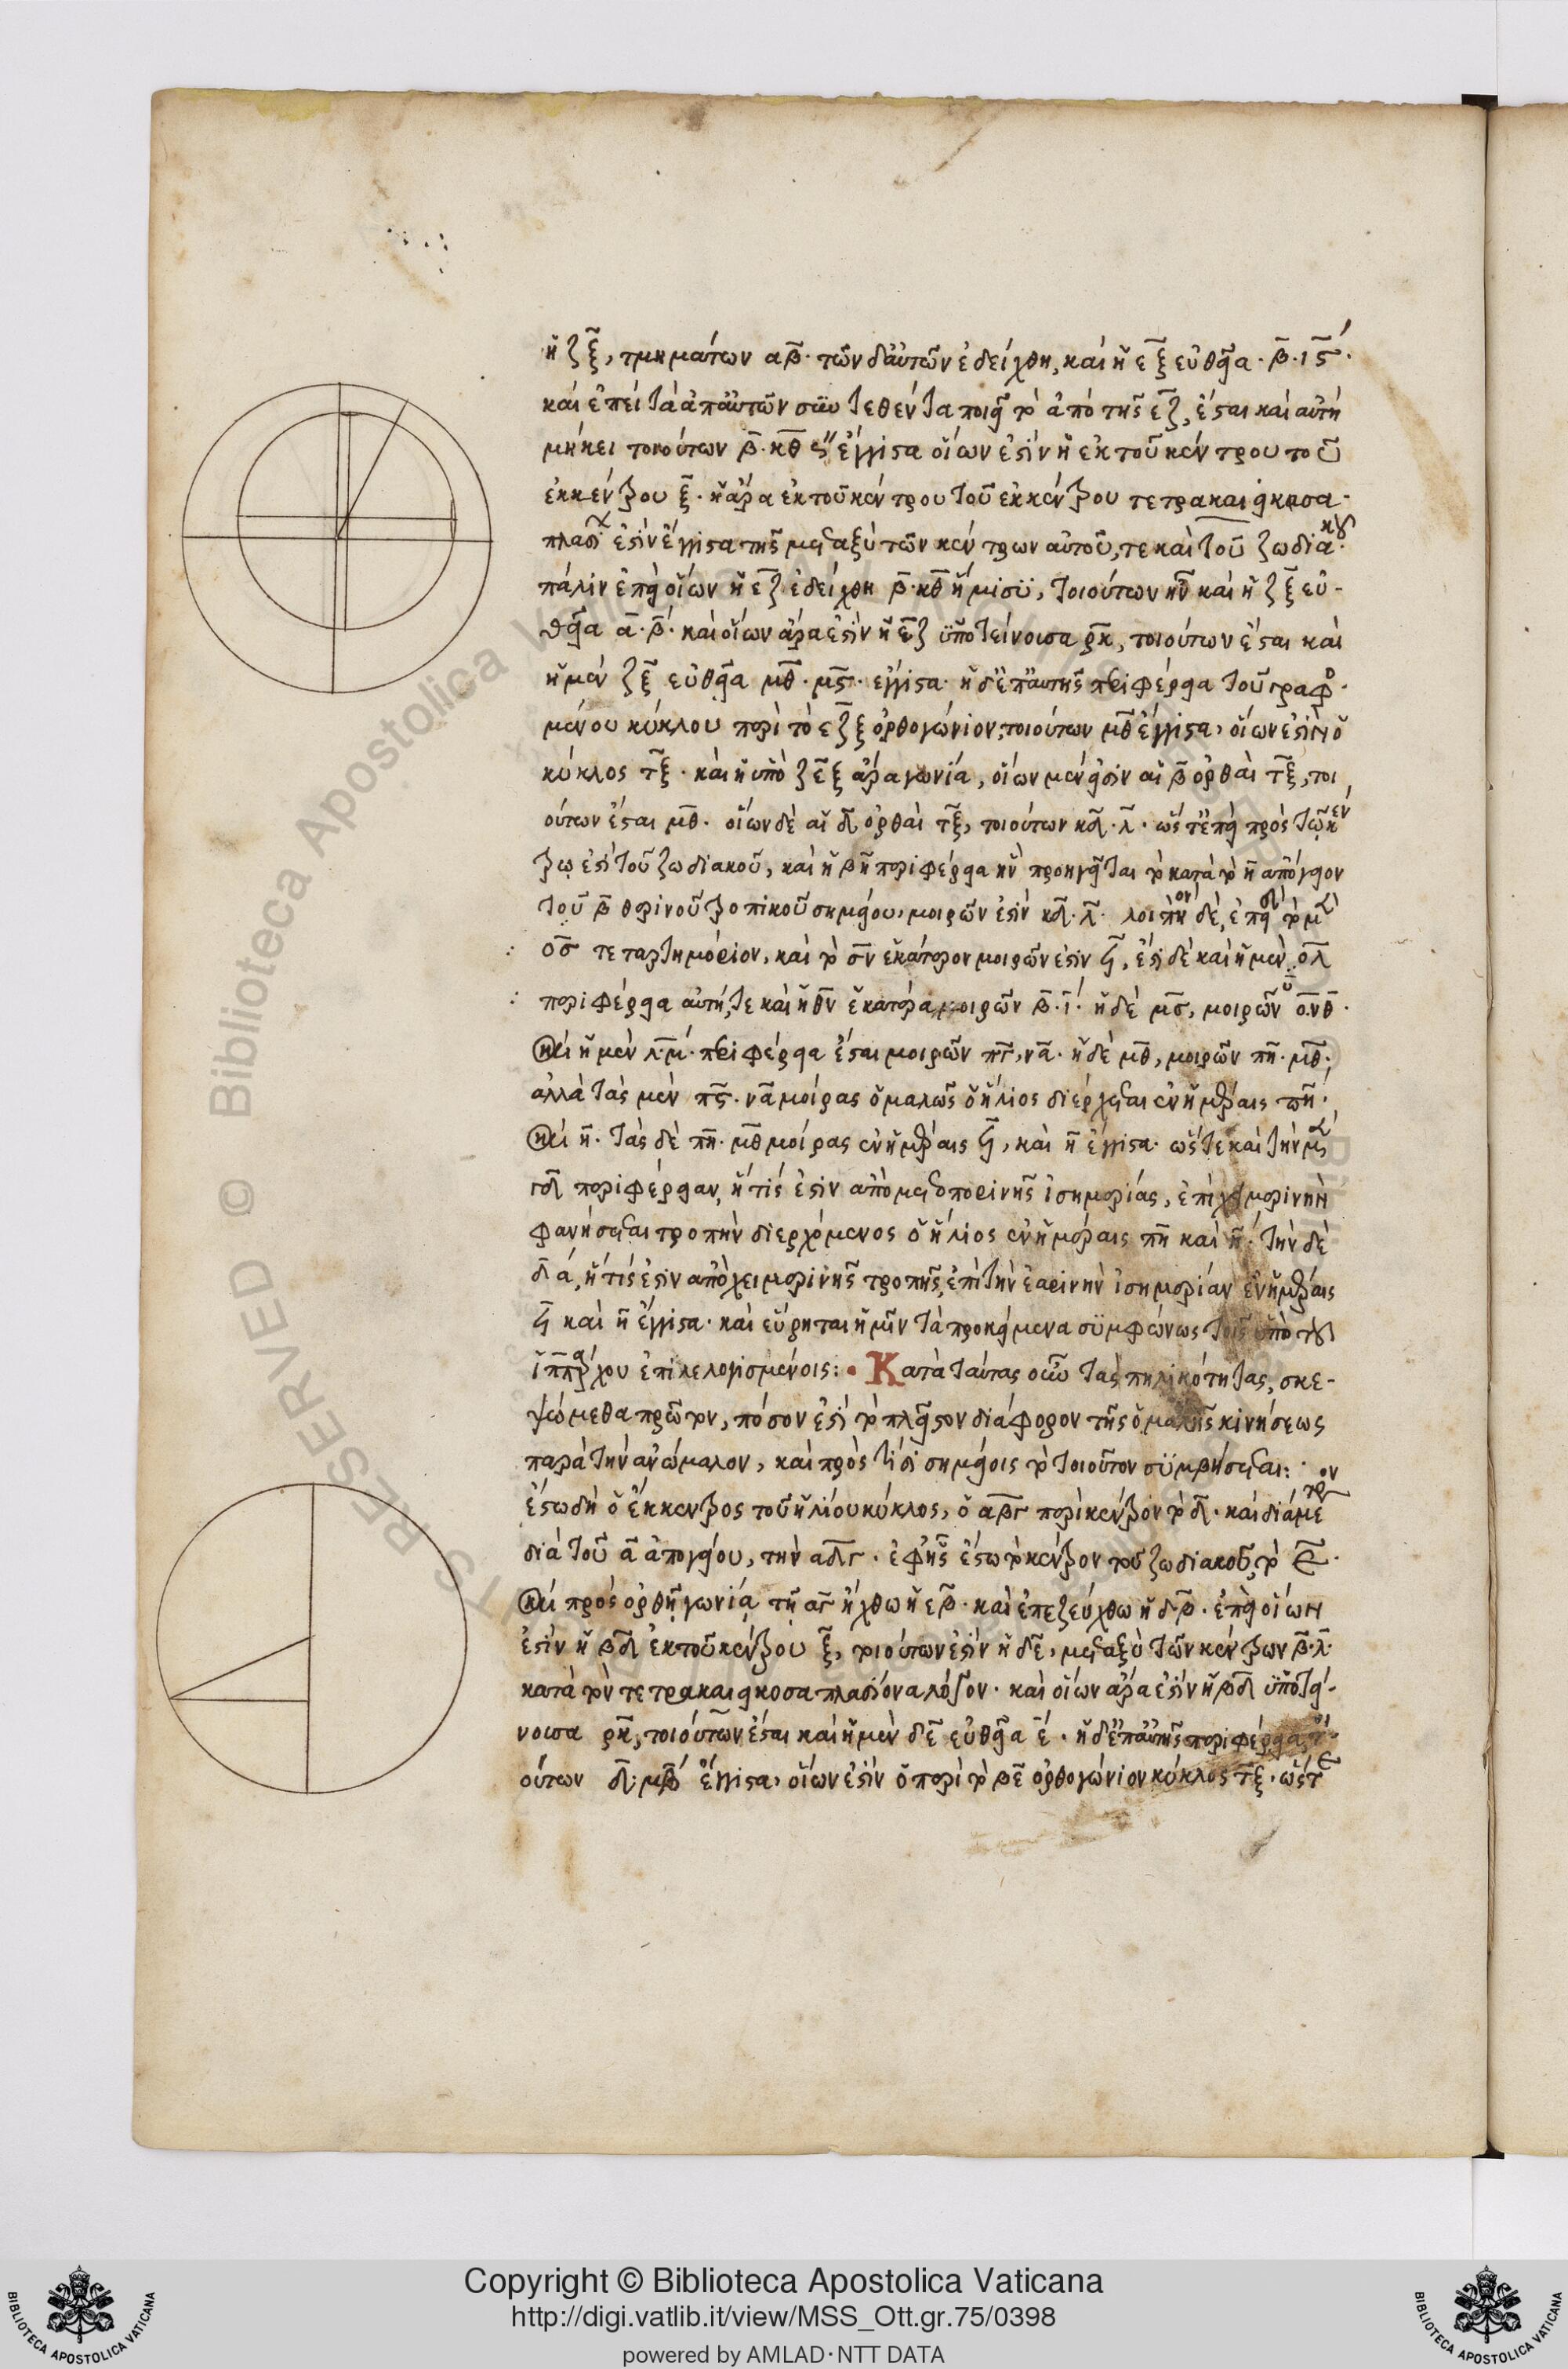 ἡ ζξ, τμημάτων α β· τῶν δ' αὐτῶν ἐδείχθη, καὶ ἡ εξ εὐθεῖα · β · ιϛ ·
καὶ ἐπεὶ τὰ ἀπ' αὐτῶν συντεθέντα ποιεῖ τὸ ἀπὸ τῆς εζ, ἔσται καὶ αὐτὴ
μήκει τοιούτων β · κθ ἔγγιστα οἵων ἐστὶν ἡ ἐκ τοῦ κέντρου τοῦ
ἐκκέντρου ξ · ἡ ἄρα ἐκ τοῦ κέντρου τοῦ ἐκκέντρου τετρακαιεικοσα-
πλασί ἐστὶν ἔγγιστα τῆς μεταξὺ τῶν κέντρων αὐτοῦ, τε καὶ τοῦ ζωδιακοῦ·
πάλιν ἐπεὶ οἵων ἡ εζ ἐδείχθη β · κθ ἥμισυ, τοιούτων ἦν καὶ ἡ ζξ εὐ-
θεῖα α · β · καὶ οἵων ἄρα ἐστὶν ἡ εζ ὑποτείνουσα ρκ, τοιούτων ἔσται καὶ
ἡ μὲν ζξ εὐθεῖα μθ · μϛ · ἔγγιστα · ἡ δ' ἐπ' αὐτῆς περιφέρεια τοῦ γραφο-
μένου κύκλου περὶ τὸ εζξ ὀρθογώνιον, τοιούτων μθ ἔγγιστα, οἵων ἐστὶν ὁ
κύκλος τξ · καὶ ἡ ὑπὸ ζεξ ἄρα γωνία, οἵων μέν εἰσιν αἱ β ὀρθαὶ τξ, τοι
ούτων ἔσται μθ · οἵων δὲ αἱ δ ὀρθαὶ τξ, τοιούτων κδ · λ · ὥστ' ἐπεὶ πρὸς τῷ κέν
τρῳ ἐστὶ τοῦ ζωδιακοῦ, καὶ ἡ βη περιφέρεια ἣν προηγεῖται τὸ κατὰ τὸ η ἀπόγειον
τοῦ β θερινοῦ τροπικοῦ σημείου, μοιρῶν ἐστὶν κδ · λ · λοιπὸν δὲ, ἐπεὶ
οσ τεταρτημόριον, καὶ τὸ σν ἑκάτερον μοιρῶν ἐστιν ϟ, ἔστι δὲ καὶ ἡ μὲν ολ
περιφέρεια αὐτή, τε καὶ ἡ θν ἑκατέρα μοιρῶν β · ι · ἡ δὲ μσ, μοιρῶν ο · νθ ·
καὶ ἡ μὲν λ · μ · περιφέρεια ἔσται μοιρῶν πϛ, να · ἡ δὲ μθ, μοιρῶν πη · μθ ·
ἀλλὰ τὰς μὲν πϛ · να μοίρας ὁμαλῶς ὁ ἥλιος διέρχεται ἐν ἡμέραις πη ·
καὶ η · τὰς δὲ πη · μθ μοίρας ἐν ἡμέραις ϟ, καὶ η ἔγγιστα · ὥστε καὶ τὴν μὲν
γδ περιφέρειαν, ἥτις ἐστὶν ἀπὸ μετοπωρινῆς ἰσημερίας, ἐπὶ χειμερινὴν
φανήσεται τροπὴν διερχόμενος ὁ ἥλιος ἐν ἡμέραις πη καὶ η · τὴν δὲ
δα, ἥτις ἐστὶν ἀπὸ χειμερινῆς τροπῆς, ἐπὶ τὴν ἐαρινὴν ἰσημερίαν ἐν ἡμέραις
ϟ καὶ η ἔγγιστα · καὶ εὕρηται ἡμῖν τὰ προκείμενα συμφώνως τοῖς ὑπὸ τοῦ
ἱππάρχου ἐπιλελογισμένοις: · Κατὰ ταύτας οὖν τὰς πηλικότητας, σκε-
ψώμεθα πρῶτον, πόσον ἐστὶ τὸ πλεῖστον διάφορον τῆς ὁμαλῆς κινήσεως
παρὰ τὴν ἀνώμαλον, καὶ πρὸς τίσι σημείοις τὸ τοιοῦτον συμβήσεται: ·
ἔστω δὴ ὁ ἔκκεντρος τοῦ ἡλίου κύκλος, ὁ αβγ περὶ κέντρον τὸ δ · καὶ διάμετρον
διὰ τοῦ α ἀπογείου, τὴν αδγ · ἐφ' ἧς ἔστω τὸ κέντρον τοῦ ζωδιακοῦ, τὸ ε ·
καὶ πρὸς ὀρθῇ γωνίᾳ τῇ αγ ἤχθω ἡ εβ · καὶ ἐπεζεύχθω ἡ δβ · ἐπεὶ οἵων
ἐστὶν ἡ βδ ἐκ τοῦ κέντρου ξ, τοιούτων ἐστὶν ἡ δε, μεταξὺ τῶν κέντρων β · λ ·
κατὰ τὸν τετρακαιεικοσαπλασίονα λόγον · καὶ οἵων ἄρα ἐστὶν ἡ βδ ὑποτεί-
νουσα ρκ, τοιούτων ἔσται καὶ ἡ μὲν δε εὐθεῖα ε · ἡ δ' ἐπ' αὐτῆς περιφέρεια, τοι-
ούτων δ · μβ ἔγγιστα, οἵων ἐστὶν ὁ περὶ τὸ βε ὀρθογώνιον κύκλος τξ · ὥστε
Copyright © Biblioteca Apostolica Vaticana
http://digi.vatlib.it/view/MSS_Ott.gr.75/0398
powered by AMLAD·NTT DATA
BIBLIOTECA APOSTOLICA VATICANA
BIBLIOTECA APOSTOLICA VATICANA